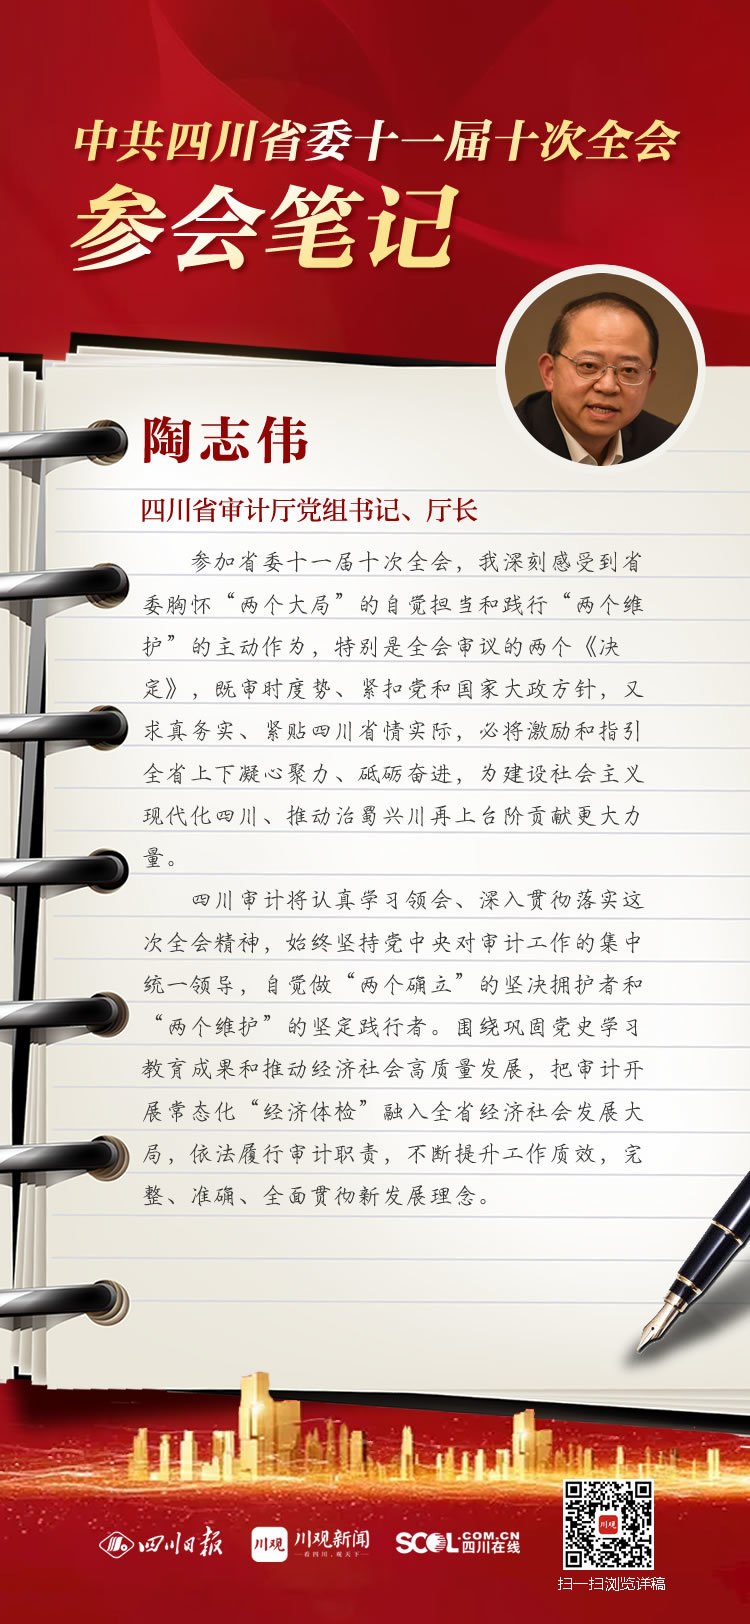 中共四川省委十一届十次全会
参会笔记
陶志伟
四川省审计厅党组书记、厅长
参加省委十一届十次全会，我深刻感受到省
委胸怀“两个大局”的自觉担当和践行“两个维
护”的主动作为，特别是全会审议的两个《决
定》，既审时度势、紧扣党和国家大政方针，又
求真务实、紧贴四川省情实际，必将激励和指引
全省上下凝心聚力、砥砺奋进，为建设社会主义
现代化四川、推动治蜀兴川再上台阶贡献更大力
量。
四川审计将认真学习领会、深入贯彻落实这
次全会精神，始终坚持党中央对审计工作的集中
统一领导，自觉做“两个确立”的坚决拥护者和
“两个维护”的坚定践行者。围绕巩固党史学习
教育成果和推动经济社会高质量发展，把审计开
展常态化“经济体检”融入全省经济社会发展大
局，依法履行审计职责，不断提升工作质效，完
整、准确、全面贯彻新发展理念。
四川日报
川观
川观新闻
看四川，观天下
SCOL.COM.CN
四川在线
川观
扫一扫浏览详稿